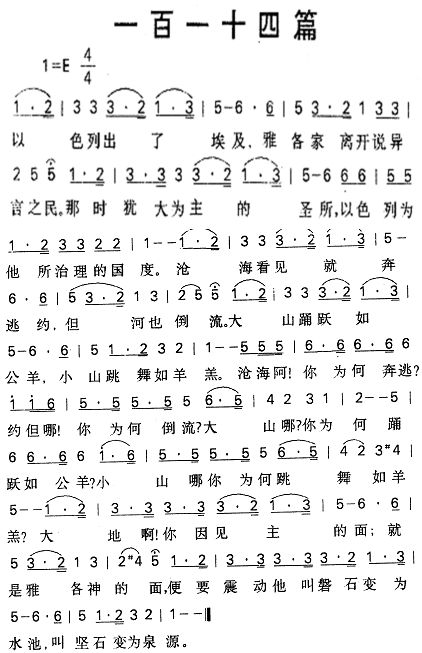 一百一十四篇
1=E 4/4
1·2 | 3 3 3·2 1·3 | 5-6·6 | 5 3·2 1 3 3 |
以 色列出 了 埃及，雅 各家 离开说异
2 5 5 1·2 | 3·3 3 3·2 1·3 | 5-6 6 6 | 5 5
言之民。那 时 犹 大为主 的 圣所，以色 列为
1·2 3 3 2 2 | 1--1·2 | 3·3 3·2 1·3 | 5-
他 所治理的国 度。沧 海看见 就 奔
6·6 | 5 3·2 1 3 | 2 5 5 1·2 3 3 3·2 1·3 |
逃约，但 河也倒 流。大 山踊跃 如
5-6·6 | 5 1·2 3 2 | 1--5 5 5 | 6·5 6·6 6 |
公羊，小 山跳 舞如羊 羔。沧海阿！你 为何 奔逃？
1 1 6 | 5·5 5·5 5 6·5 | 4 2 3 1 | 2--5 |
约但哪！你 为何 倒流？大 山哪？你为 何 踊
6 6·6 6 1·6 | 5·5 5·5 5 6·5 | 4 2 3 #4 |
跃如 公羊？小 山 哪你 为何跳 舞 如羊
5--1·2 | 3·3 3·3 3·2 1·3 | 5-6·6 |
羔？大 地 啊！你 因见 主 的面；就
5 3·2 1 3 | 2 #4 5 1·2 | 3·3 3·3 3·2 1·3 |
是雅 各神 的 面，便 要 震 动他 叫磐 石变 为
5-6·6 | 5 1·2 3 2 | 1-- ‖
水池，叫 坚石 变为泉 源。